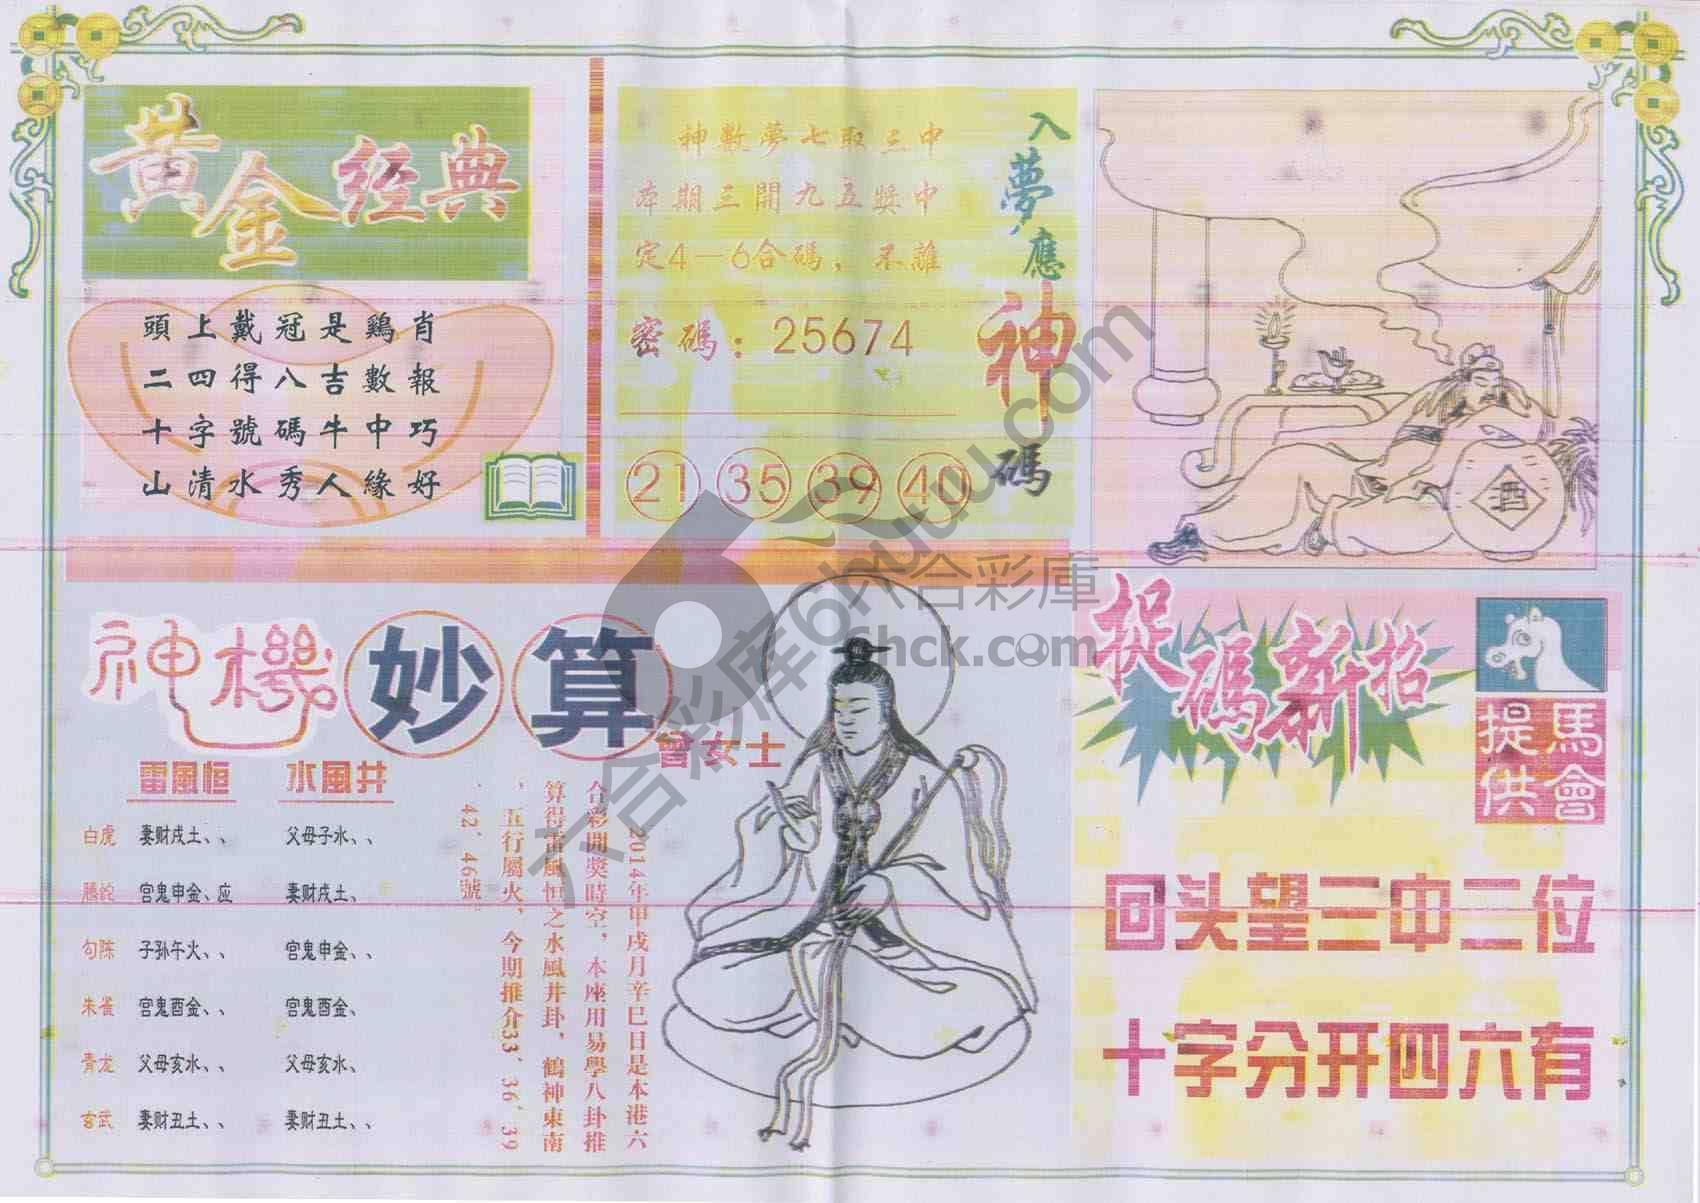 黄金经典
頭上戴冠是鷄肖
二四得八吉數報
十字號碼牛中巧
山清水秀人緣好
神數夢七取三中
本期三開九五獎中
定4－6合碼，不離
密碼：25674
21 35 39 40
入夢應神碼
酒
神機妙算
曾女士
雷風恒 水風井
白虎 妻财戌土、、 父母子水、、
腾蛇 官鬼申金、应 妻财戌土、
勾陈 子孙午火、、 官鬼申金、、
朱雀 官鬼酉金、、 官鬼酉金、
青龙 父母亥水、、 父母亥水、
玄武 妻财丑土、、 妻财丑土、、
2014年甲戌月辛巳日是本港六
合彩開獎時空，本座用易學八卦推
算得雷風恒之水風井卦，鶴神東南
，五行屬火，今期推介33、36、39
、42、46號。
捉碼新招
馬會提供
回头望三中二位
十字分开四六有
六合彩库6huuu.com
六合彩庫
6hck.com